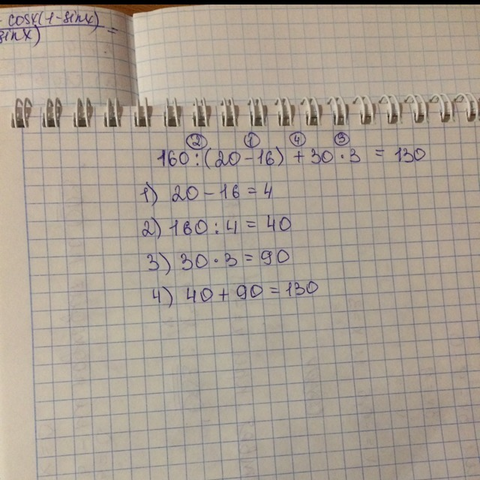 cosx(1-sinx)
sinx) =
② ① ④ ③
160:(20-16)+30·3=130
1) 20-16=4
2) 160:4=40
3) 30·3=90
4) 40+90=130